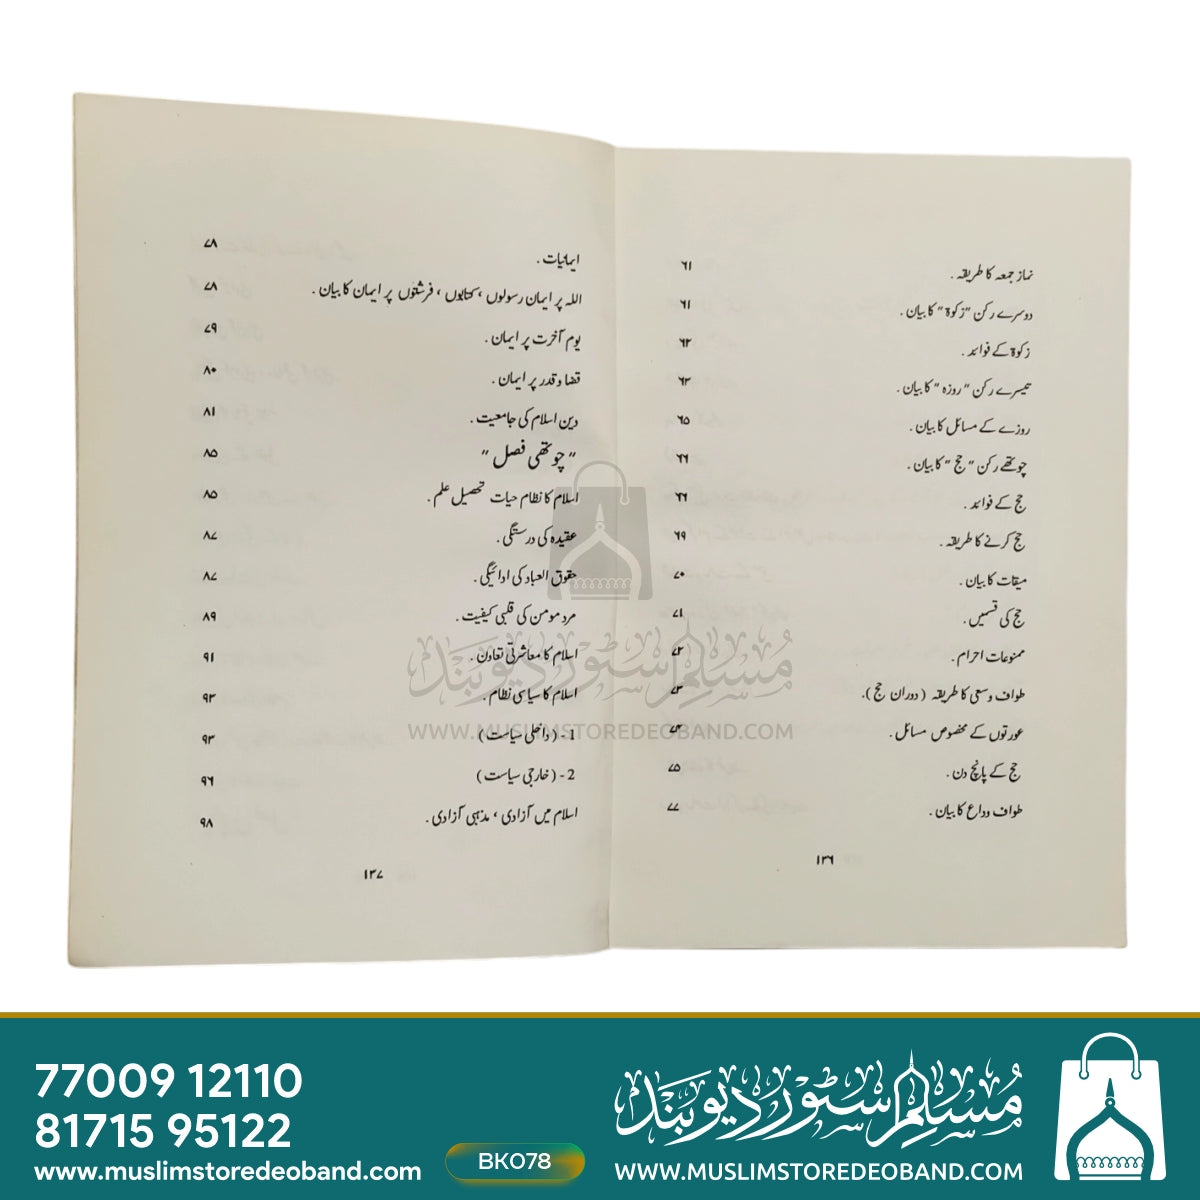 نماز جمعہ کا طریقہ . ۶۱
دوسرے رکن "زکوۃ" کا بیان . ۶۱
زکوۃ کے فوائد . ۶۲
تیسرے رکن "روزہ" کا بیان . ۶۳
روزے کے مسائل کا بیان . ۶۵
چوتھے رکن "حج" کا بیان . ۶۶
حج کے فوائد . ۶۶
حج کرنے کا طریقہ . ۶۹
میقات کا بیان . ۷۰
حج کی قسمیں . ۷۱
ممنوعات احرام . ۷۲
طواف وسعی کا طریقہ (دوران حج). ۷۳
عورتوں کے مخصوص مسائل . ۷۴
حج کے پانچ دن . ۷۵
طواف وداع کا بیان . ۷۷
۱۳۶
ایمانیات . ۷۸
اللہ پر ایمان رسولوں ، کتابوں ، فرشتوں پر ایمان کا بیان . ۷۸
یوم آخرت پر ایمان . ۷۹
قضا و قدر پر ایمان . ۸۰
دین اسلام کی جامعیت . ۸۱
"چوتھی فصل" ۸۵
اسلام کا نظام حیات تحصیل علم . ۸۵
عقیدہ کی درستگی . ۸۷
حقوق العباد کی ادائیگی . ۸۷
مرد مومن کی قلبی کیفیت . ۸۹
اسلام کا معاشرتی تعاون . ۹۱
اسلام کا سیاسی نظام . ۹۳
1 - (داخلی سیاست) ۹۳
2 - (خارجی سیاست) ۹۶
اسلام میں آزادی ، مذہبی آزادی . ۹۸
۱۳۷
مسلم سٹور دیوبند
WWW.MUSLIMSTOREDEOBAND.COM
77009 12110
81715 95122
www.muslimstoredeoband.com
BK078
مسلم سٹور دیوبند
WWW.MUSLIMSTOREDEOBAND.COM